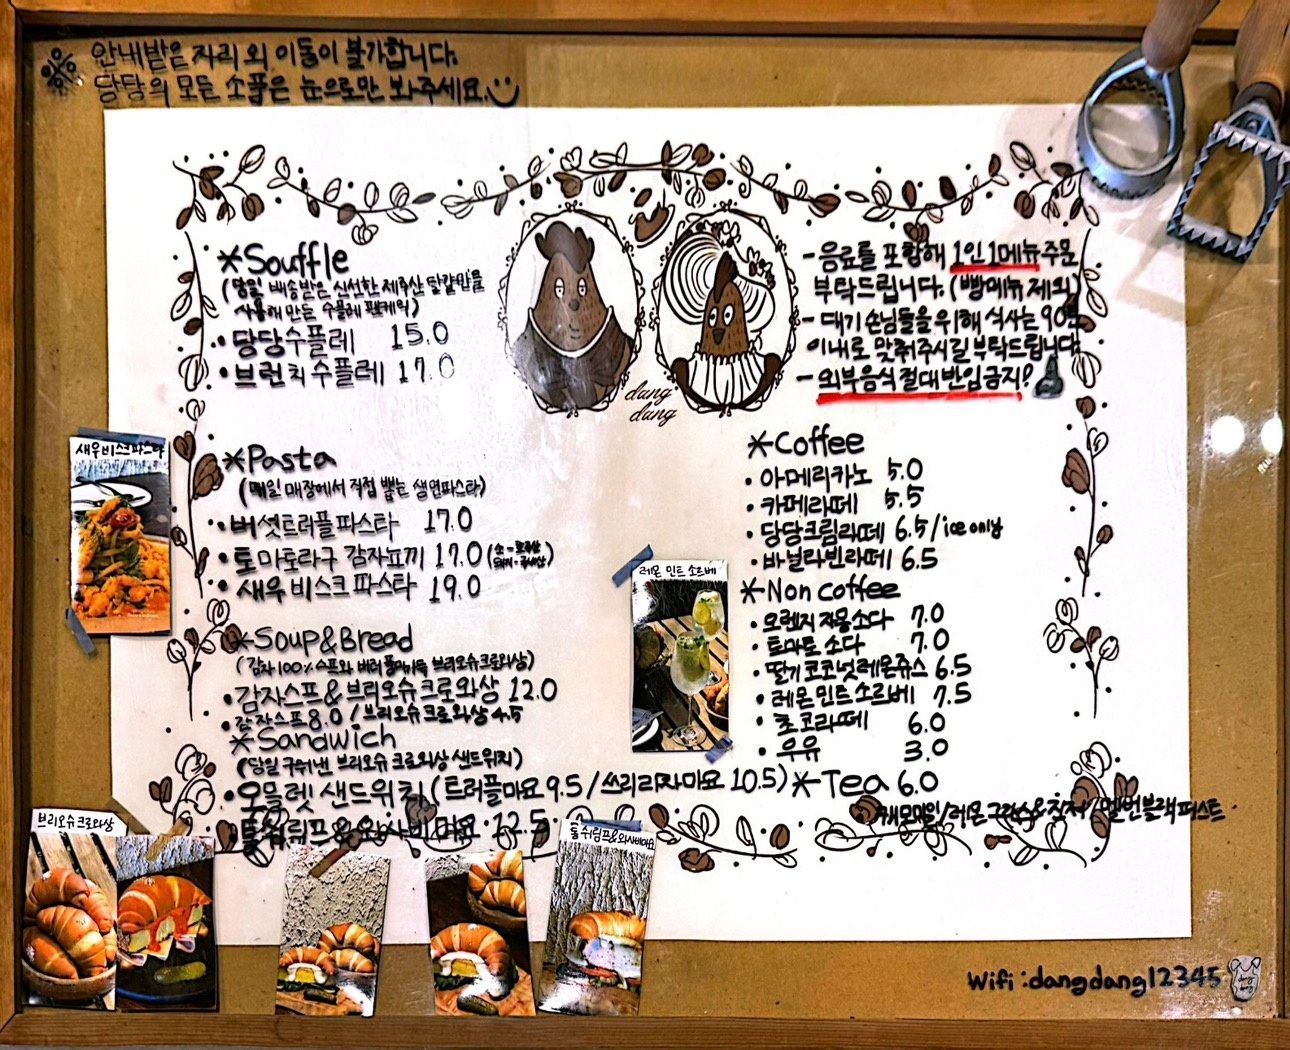 안내받은 자리 외 이동이 불가합니다.
당당의 모든 소품은 눈으로만 봐주세요.
*Souffle
(당일 배송받은 신선한 제주산 달걀만을
사용해 만드는 수플레 팬케익)
• 당당수플레 15.0
• 브런치 수플레 17.0
dang
dang
- 음료를 포함해 1인 1메뉴 주문
부탁드립니다. (빵메뉴 제외)
- 대기 손님들을 위해 식사는 90분
이내로 맞춰주시길 부탁드립니다.
- 외부음식 절대 반입금지!
새우비스크파스타
*Pasta
(매일 매장에서 직접 뽑는 생면파스타)
• 버섯트러플파스타 17.0
• 토마토라구 감자뇨끼 17.0
• 새우 비스크 파스타 19.0
*Soup&Bread
(감자100%스프와 버터 브리오슈크로와상)
• 감자스프&브리오슈크로와상 12.0
• 감자스프 8.0 / 브리오슈크로와상 4.5
*Sandwich
(당일 구워낸 브리오슈 크로와상 샌드위치)
• 오믈렛 샌드위치 (트러플마요 9.5 / 쓰리라차마요 10.5)
• 통쉬림프&와사비마요 12.5
*Coffee
• 아메리카노 5.0
• 카페라떼 5.5
• 당당크림라떼 6.5/ice only
• 바닐라빈라떼 6.5
레몬 민트 소르베
*Non coffee
• 오렌지 자몽소다 7.0
• 토마토 소다 7.0
• 딸기코코넛레몬쥬스 6.5
• 레몬민트소르베 7.5
• 초코라떼 6.0
• 우유 3.0
*Tea 6.0
캐모마일/레몬 /멜번블랙퍼스트
브리오슈크로와상
통쉬림프&와사비마요
Wifi : dangdang12345
dang
dang